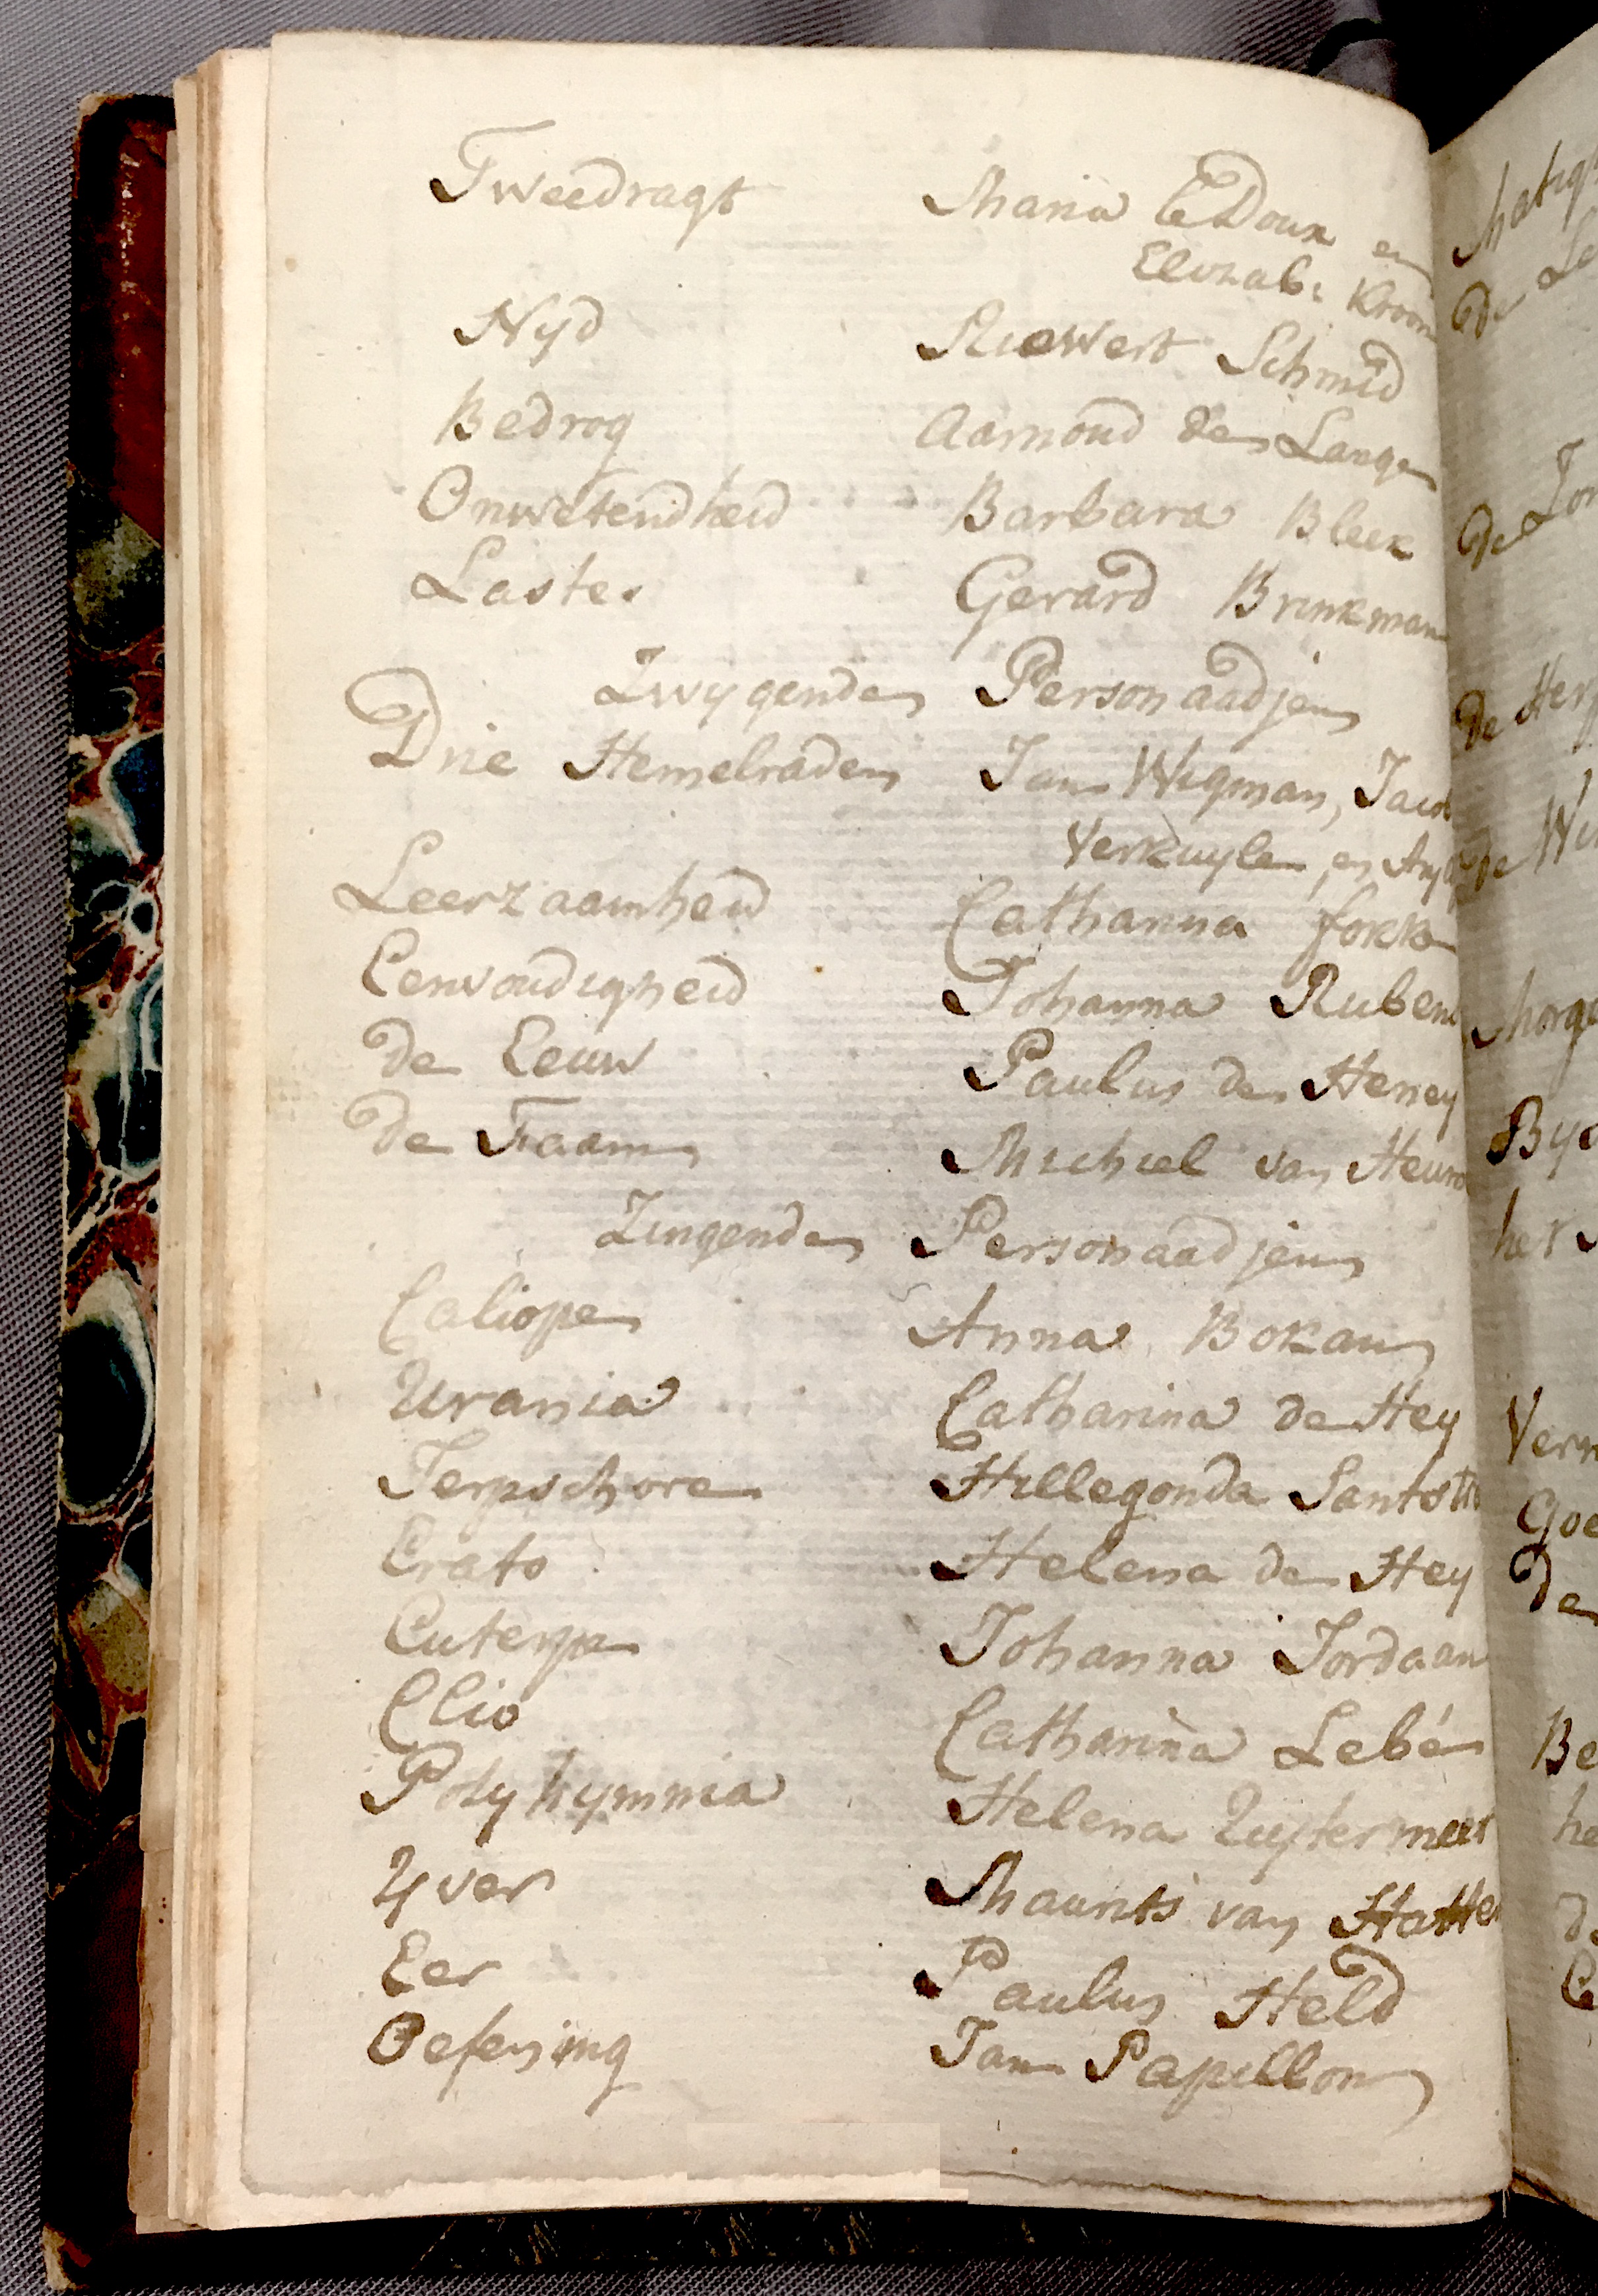 Tweedragt Maria le Doux en
Elisab: Kroon
Nyd Riewert Schmid
Bedrog Aarnoud de Lange
Onwetendheid Barbara Bleek
Laster Gerard Brinkman
Zwygende Personaadjen
Drie Hemelraden Jan Wigman, Jacob
Verkuylen en
Leerzaamheid Catharina Fokke
Eenvoudigheid Johanna Rubens
de Eeuw Paulus de Heney
de Faam Michiel van
Zingende Personaadjen
Caliope Anna Bokan
Urania Catharina de Hey
Terpschore Hillegonda
Erato Helena de Hey
Euterpe Johanna Jordaan
Clio Catharina Lebé
Polyhymnia Helena
Yver Maurits van
Eer Paulus Held
Oefening Jan Papillon
de
de
de
de
de
By
het
de
Be